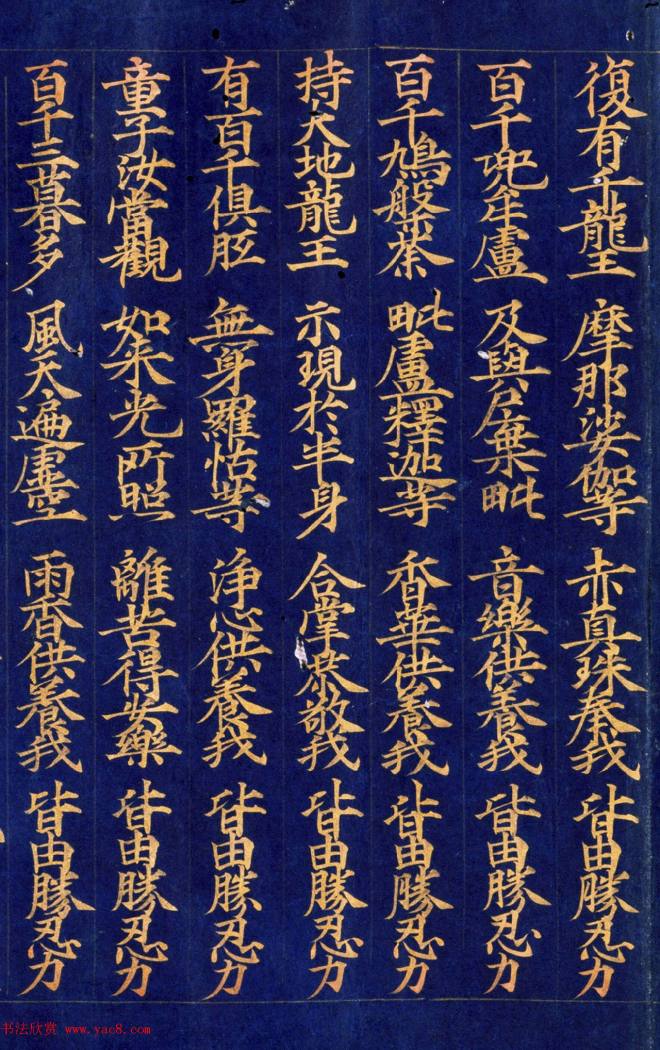 復有千龍王 摩那娑伽等 赤真珠奉我 皆由勝忍力
百千兜牟盧 及與尸棄毗 音樂供養我 皆由勝忍力
百千鳩槃茶 毗盧釋迦等 香華供養我 皆由勝忍力
持大地龍王 示現於半身 合掌恭敬我 皆由勝忍力
有百千俱胝 無身羅怙等 淨心供養我 皆由勝忍力
童子汝當觀 如来光所照 離苦得安樂 皆由勝忍力
百千三暮多 風天遍虛空 雨香供養我 皆由勝忍力
书法欣赏 www.yac8.com